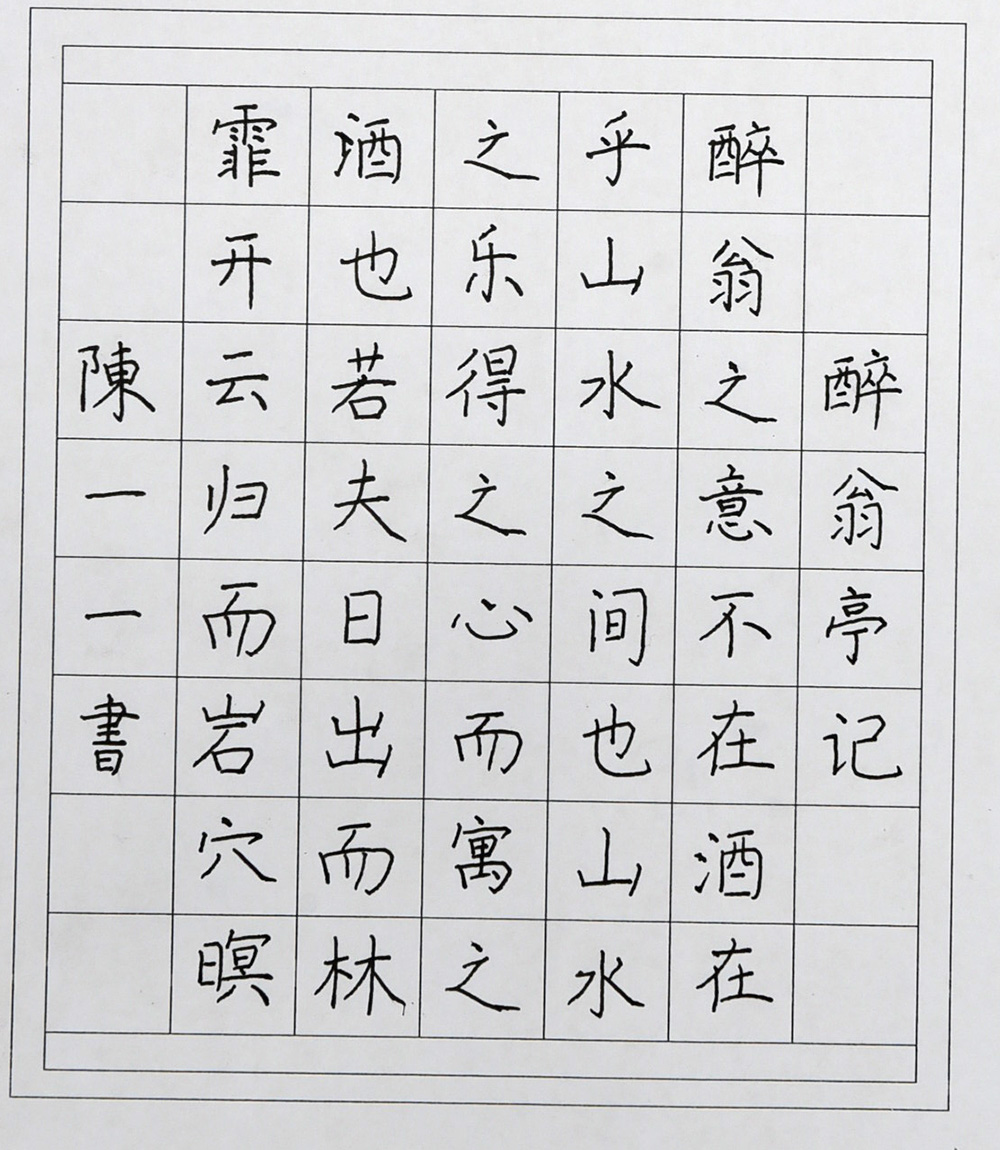 醉翁亭记
醉翁之意不在酒在
乎山水之间也山水
之乐得之心而寓之
酒也若夫日出而林
霏开云归而岩穴暝
陳一一書